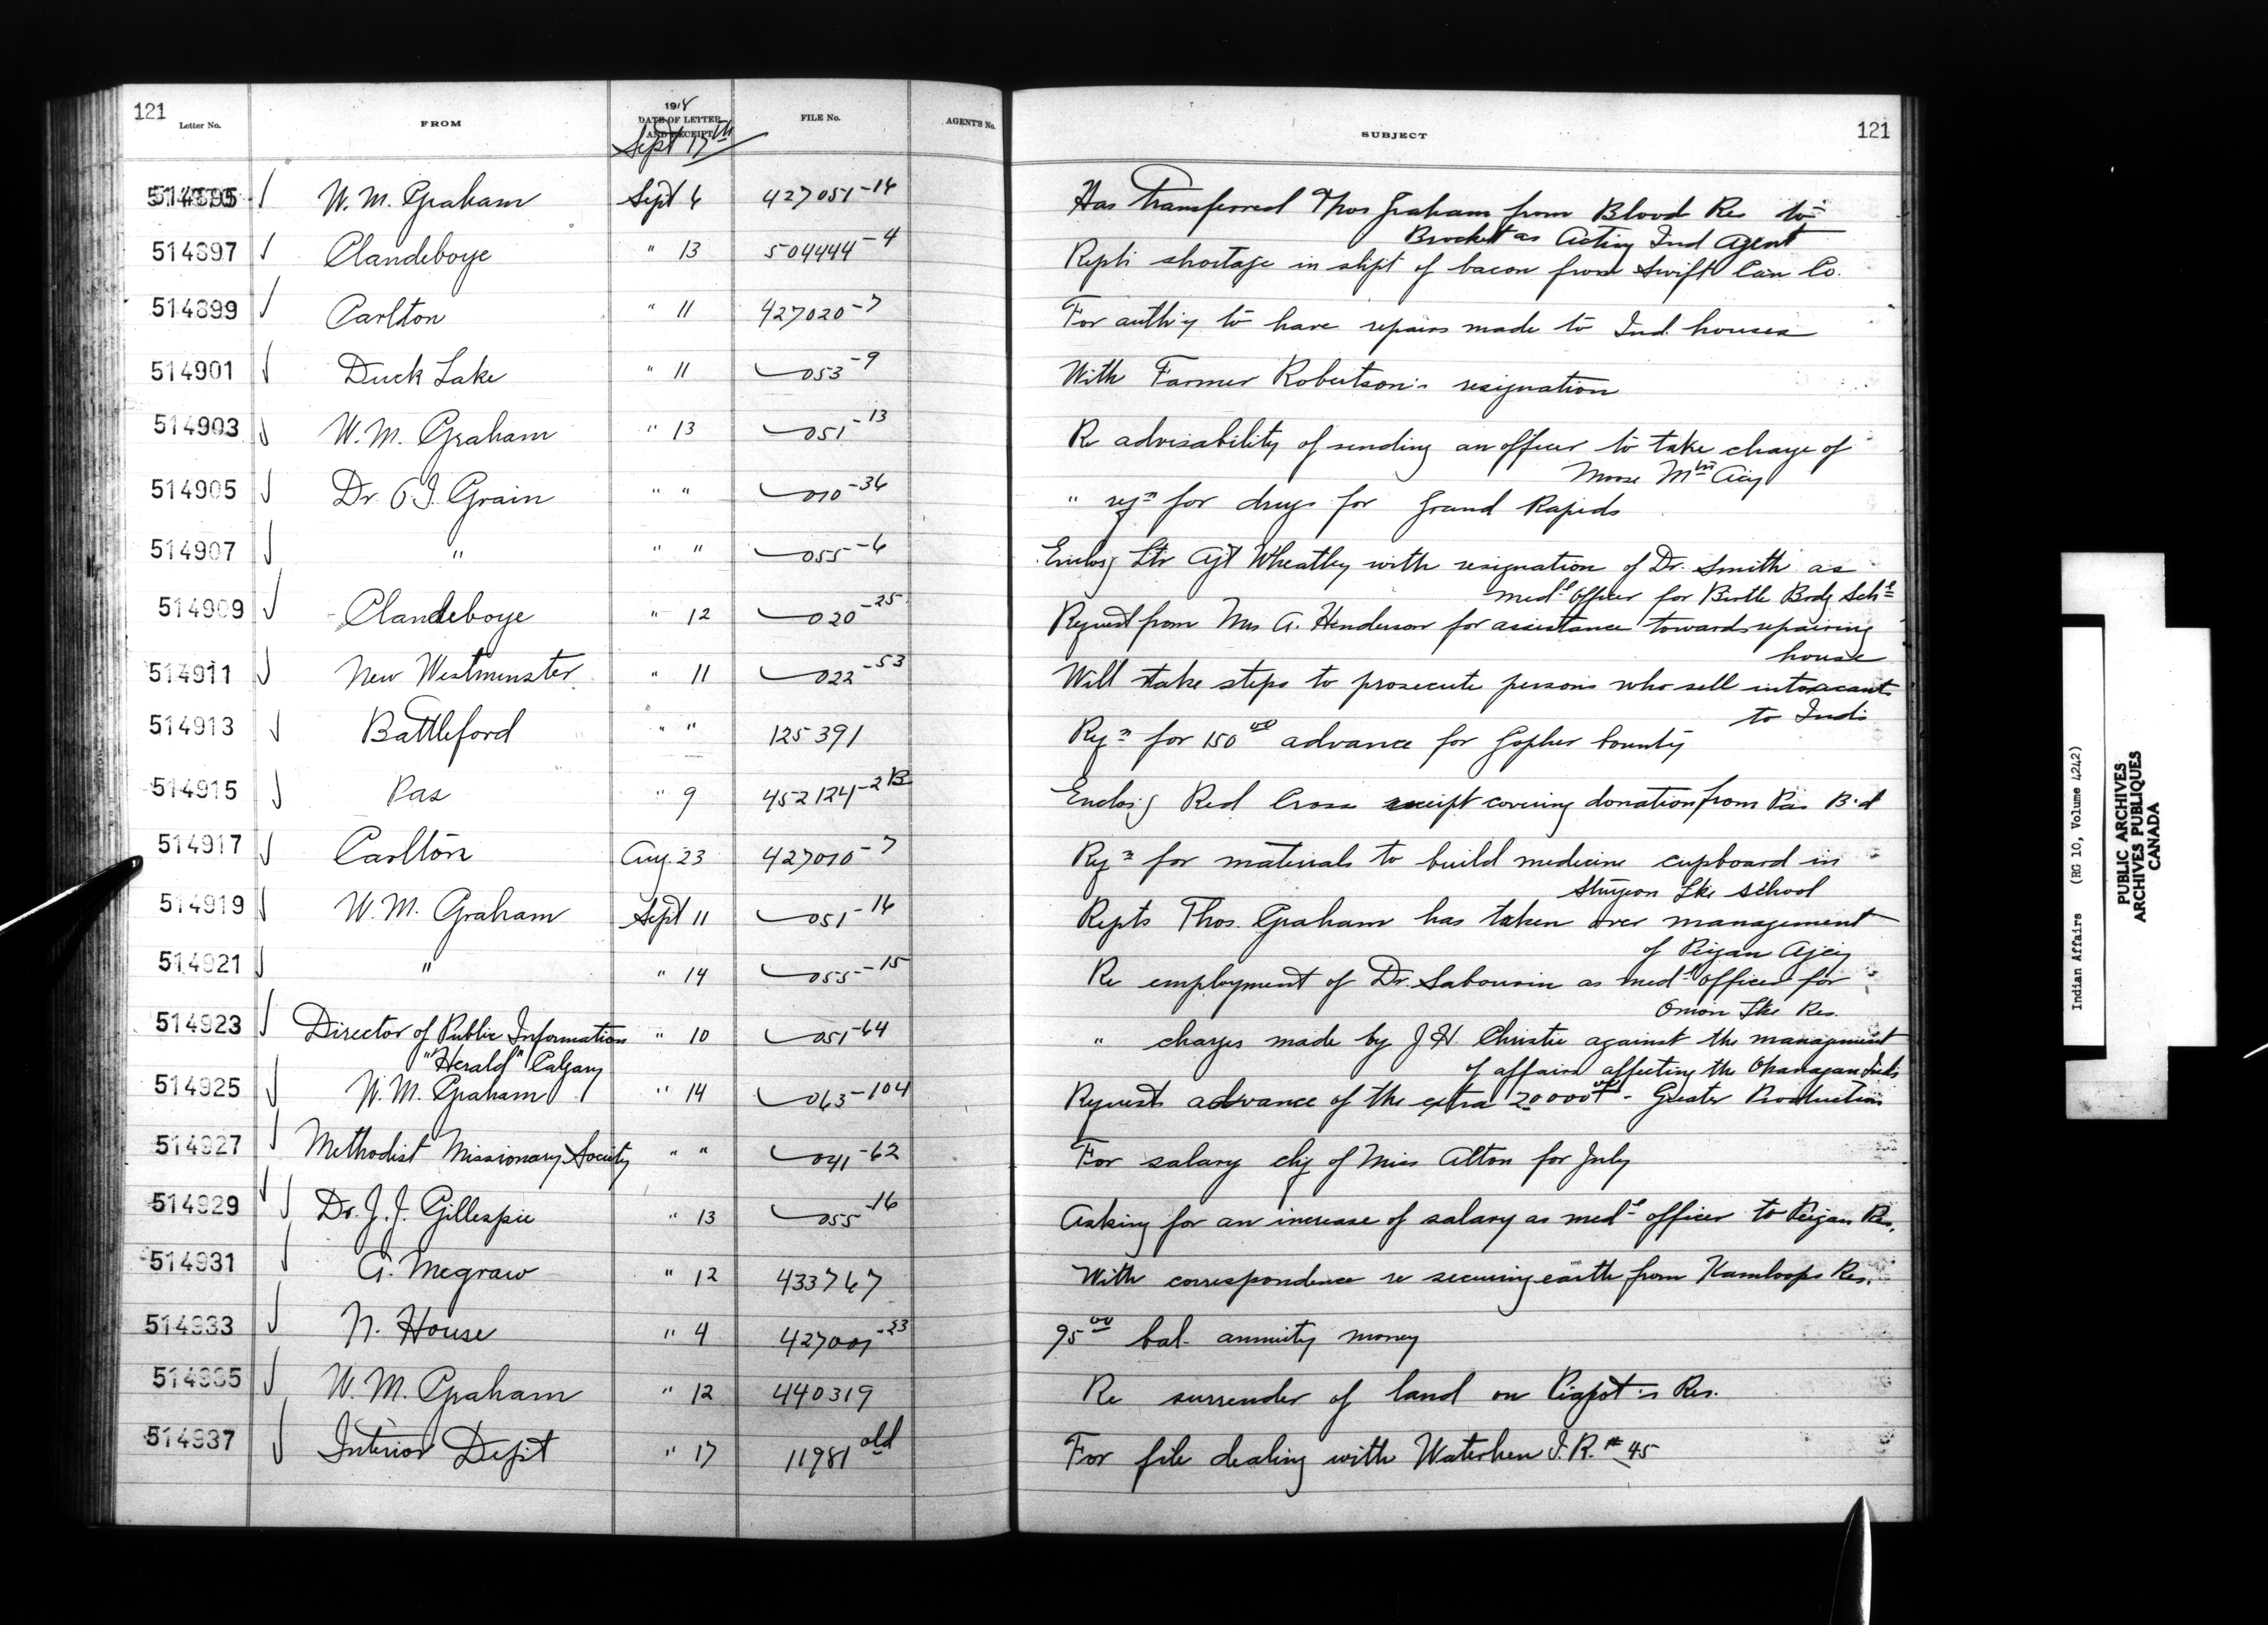 121
Letter No.
FROM
1918
DATE OF LETTER
AND RECEIPT
Sept 17th
FILE No.
AGENT'S No.
SUBJECT
121
514895 W. M. Graham Sept 6 427051-16 Has Transferred Thos Graham from Blood Res to
Brocket as Acting Ind Agent
514897 Clandeboye " 13 504444-4 Repts shortage in shpt of bacon from Swift Can Co.
514899 Carlton " 11 427020-7 For auth'y to have repairs made to Ind. houses
514901 Duck Lake " 11 053-9 With Farmer Robertson's resignation
514903 W. M. Graham " 13 051-13 Re advisability of sending an officer to take charge of
Moose Mtn Agcy
514905 Dr. O I. Grain " " 010-36 " reqn for drugs for Grand Rapids
514907 " " " 055-6 Enclosg Ltr Agt Wheatley with resignation of Dr. Smith as
medl officer for Birtle Brdg Schl
514909 Clandeboye " 12 020-25 Request from Mrs A. Henderson for assistance towards repairing
house
514911 New Westminster " 11 022-53 Will take steps to prosecute persons who sell intoxicants
to Inds
514913 Battleford " " 125391 Reqn for 150 00 advance for Gopher bounty
514915 Pas " 9 452124-2B Enclosg Red Cross receipt covering donation from Pas Bd
514917 Carlton Aug 23 427010-7 Reqn for materials to build medicine cupboard in
Sturgeon Lke School
514919 W. M. Graham Sept 11 051-16 Repts Thos. Graham has taken over management
of Peigan Agcy
514921 " " 14 055-15 Re employment of Dr. Sabourin as medl officer for
Onion Lke Res.
514923 Director of Public Information " 10 051-64 " charges made by J. H. Christie against the management
"Herald" Calgary of affairs affecting the Okanagan Inds
514925 W. M. Graham " 14 063-104 Requests advance of the extra 20000 00 - Greater Production
514927 Methodist Missionary Society " " 041-62 For salary chq of Miss Alton for July
514929 Dr. J. J. Gillespie " 13 055-16 Asking for an increase of salary as medl officer to Peigan Res.
514931 A. Mcgraw " 12 433767 With correspondence re securing earth from Kamloops Res.
514933 N. House " 4 427001-23 95 00 bal. annuity money
514935 W. M. Graham " 12 440319 Re surrender of land on Piapot's Res.
514937 Interior Dept " 17 11981 old For file dealing with Waterhen I. R. # 45
Indian Affairs (RG 10, Volume 4242)
PUBLIC ARCHIVES
ARCHIVES PUBLIQUES
CANADA